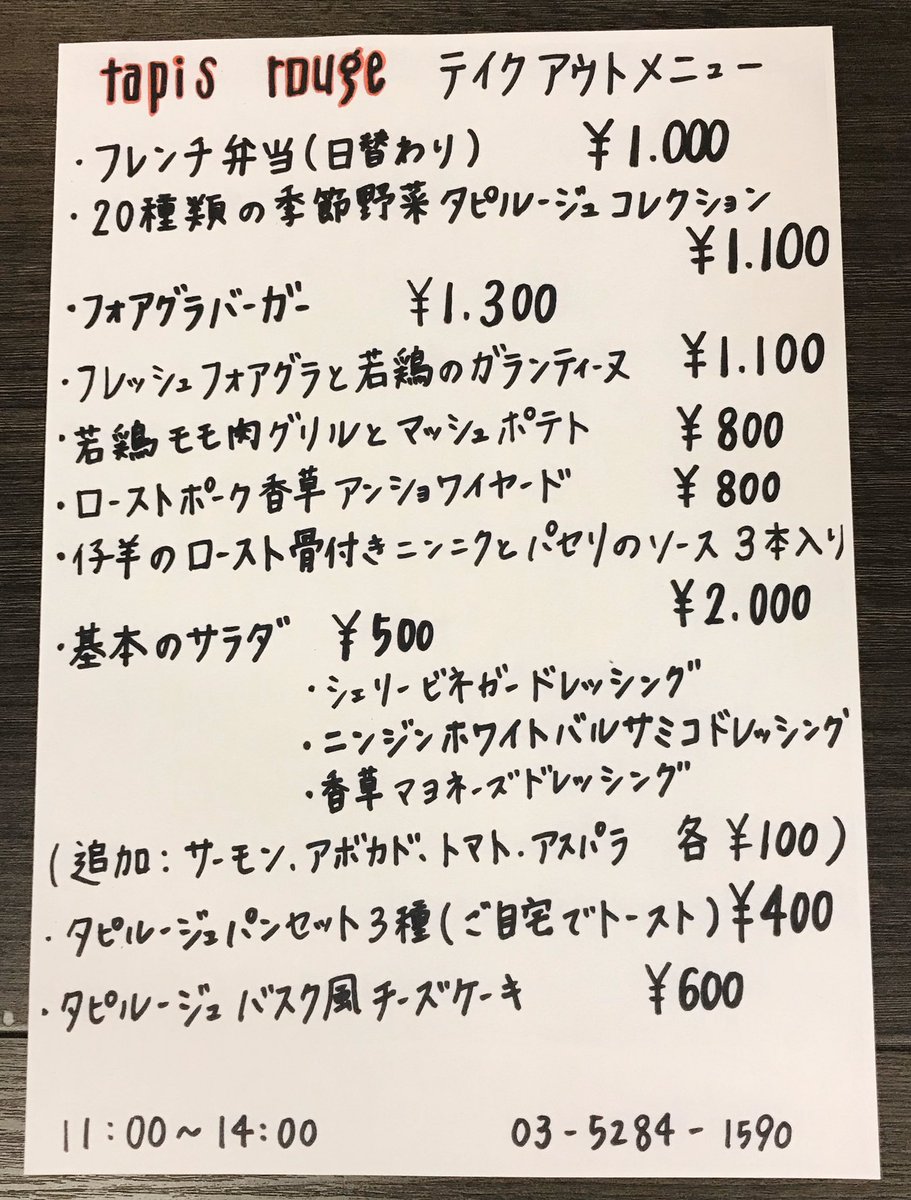 tapis rouge テイクアウトメニュー
・フレンチ弁当(日替わり) ¥1.000
・20種類の季節野菜タピルージュコレクション
¥1.100
・フォアグラバーガー ¥1.300
・フレッシュフォアグラと若鶏のガランティーヌ ¥1.100
・若鶏モモ肉グリルとマッシュポテト ¥800
・ローストポーク香草アンショワイヤード ¥800
・仔羊のロースト骨付きニンニクとパセリのソース 3本入り
¥2.000
・基本のサラダ ¥500
・シェリービネガードレッシング
・ニンジンホワイトバルサミコドレッシング
・香草マヨネーズドレッシング
(追加:サーモン、アボカド、トマト、アスパラ 各¥100)
・タピルージュパンセット3種(ご自宅でトースト)¥400
・タピルージュバスク風チーズケーキ ¥600
11:00~14:00 03-5284-1590